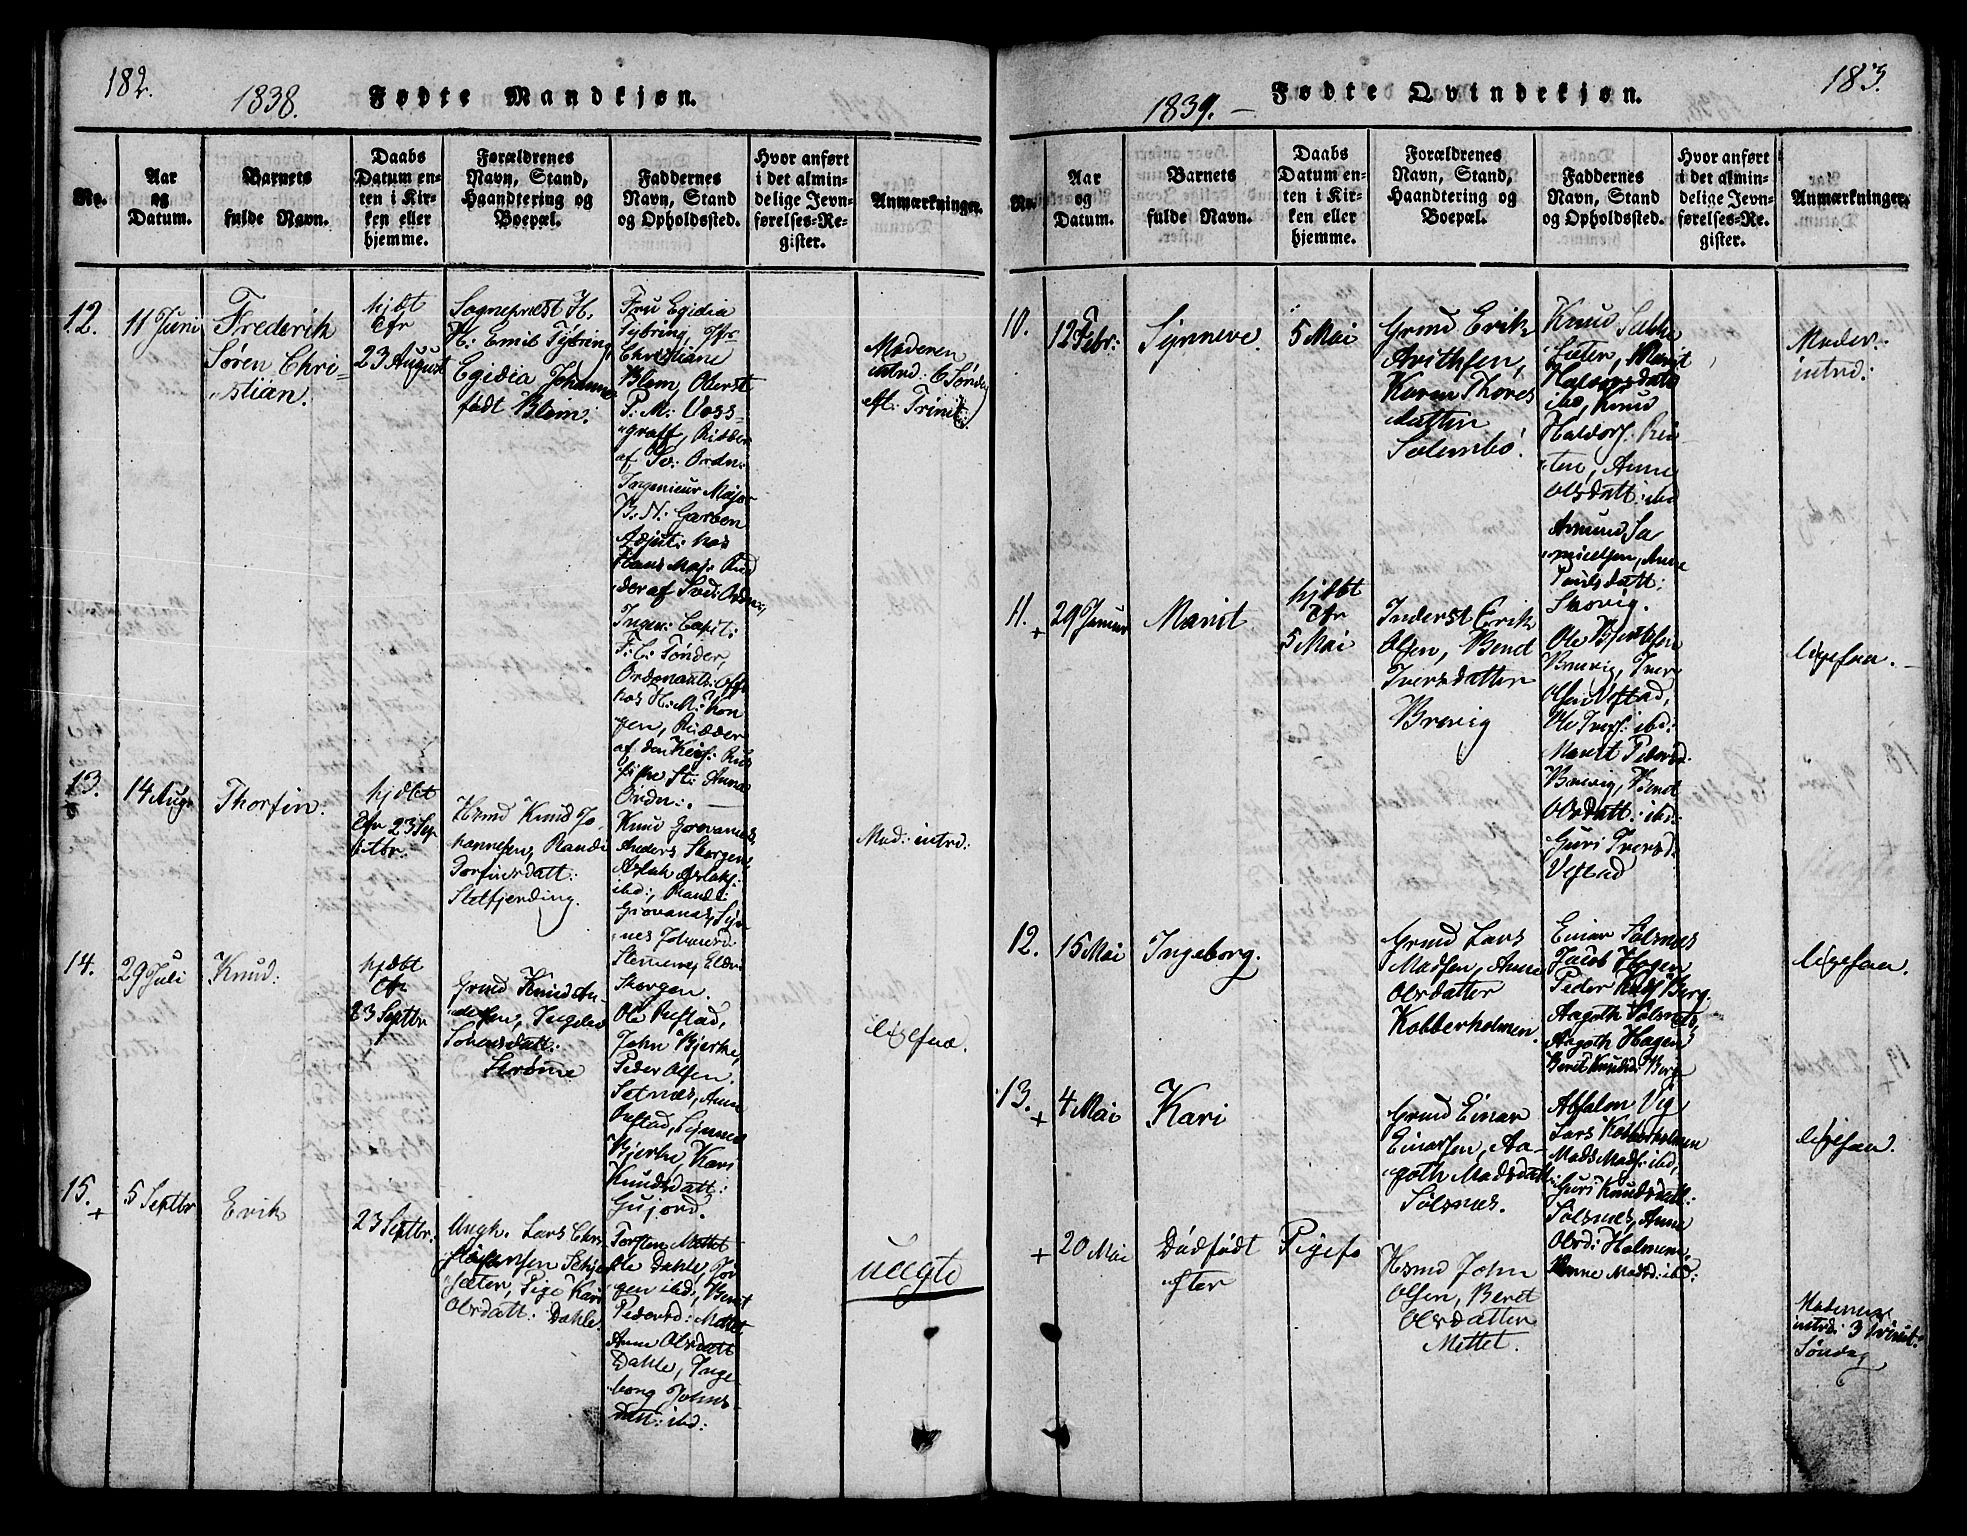 182.
1838.
Fødte Mandkjøn.
No.
Aar
og
Datum.
Barnets
fulde Navn.
Daabs
Datum en-
ten i Kir-
ken eller
hjemme.
Forældrenes
Navn, Stand,
Haandtering og
Boepæl.
Faddernes
Navn, Stand
og Opholdssted.
Hvor anført
i det almin-
delige Jevn-
førelses-Re-
gister.
Anmærkninger.
12.
11 Juni
Frederik
Søren Chri-
stian.
hjdbt
Cfr
23 August
Sognepræst H.
H: Emil Tybring,
Egidia Johanne
født Blom:
Fru Egidia
Tybring, Jfr
Christiane
Blom, Oberst
P: M: Voss-
graff, Ridder
af Sv: Ordn:
Ingenieur Major
B: N: Garben
Adjut: hos
Hans Maj: Rid
der af Svd: Ordn:
Ingen: Capit:
F: C: Tønder,
Ordonants: Offr
hos H: M: Kon
gen, Ridder
af den Keis: Rus
siske St: Anna
Orden:
Moderen
intrd: 6 Sønda
eft: Trinit:
13.
14 Aug:
Thorfin.
hjdbt
Cfr 23 Sep
tbr:
Hmd Knud Jo-
hannesen, Randi
Dorfinsdatt:
Slotfjerding.
Knud
Anders Skorgen,
Aslak Aslaks:
ibd:, Randi
Syn
nes Johansd:
Skorgen.
Mod: intrd:
14.
29 Juli
Knud:
hjdbt
Cfr
23 Septbr
Grmd Knud An-
dersen, Ingebor
Johansdatt:
Strømme
Ole Rustad,
John Bjerke,
Peder Olsen
Setnæs, Anne
Rustad, Synnev
Bjerke, Kari
Knudsdatt:
Gujord.
ligesaa.
15.
+
5 Septbr
Erik
23 Septbr.
Ungk. Lars Chri
stofersen
sæter, Pige Kari
Olsdatt: Dahle.
Torsten Mettet
Ole Dahle, Jør
gen ibd:, Beret
Pedersd: Mettet
Anne Olsdatt
Dahle, Inge-
borg Johns-
datt: ibd:
uægte
183.
1839.
Fødte Qvindekjøn.
No.
Aar
og
Datum.
Barnets
fulde Navn.
Daabs
Datum en-
ten i Kir-
ken eller
hjemme.
Forældrenes
Navn, Stand,
Haandtering og
Boepæl.
Faddernes
Navn, Stand
og Opholdssted.
Hvor anført
i det almin-
delige Jevn-
førelses-Re-
gister.
Anmærkninger.
10.
12 Febr:
Synneve.
5 Mai
Grmd Erik
Arithsen,
Karen Thores
datter
Salenbø.
Knud
sæter, Marit
Halvorsdatt:
ibd, Knud
Haldors:
Anne
Olsdatt: ibd
Amund Sa
muelsen, Anne
Poulsdatt:
Skovig.
Moder:
intrd:
11.
+
29 Januar
Marit
hjdbt
Cfr
5 Mai
Inderst Erik
Olsen, Beret
Iversdatter
Brevig
Ole
Brevig, Iver
Olsen Vestad,
Ole Ivers: ibd:
Marit Pedersd
Brevig, Beret
Olsdatt: ibd:
Guri Iversd:
Vestad
ligesaa.
12.
15 Mai
Ingeborg.
Grmd Lars
Madsen, Anne
Olsdatter
Kobberholmen.
Einar Sølsnæs
Jacob Hagen,
Peder Berg.
Aagoth Sølsnæs,
Aagoth Hagen,
Beret Knudsd: Berg
ligesaa.
13.
+
4 Mai
Kari
Grmd Einar
Einarsen, Aa-
goth Madsdatt:
Sølsnæs.
Absalon Vig
Lars Kobberholmen
Mads Mads: ibd,
Guri Knudsdatt:
Sølsnæs, Anne
Olsd: Holmene.
Anne Madsd: ibd:
ligesaa.
+
20 Mai
Dødfødt Pige
efter
Hsmd John
Olsen, Beret
Olsdatter
Mettet.
Moderen
intrd: 3 Trinit:
Søndag